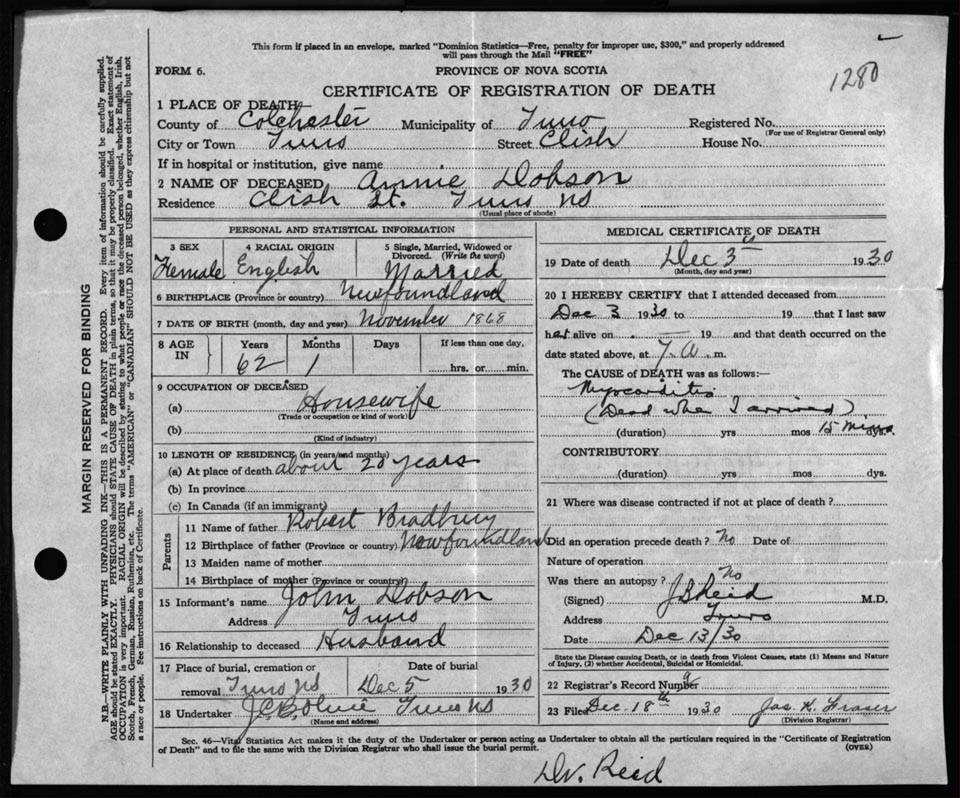 This form if placed in an envelope, marked "Dominion Statistics—Free, penalty for improper use, $300," and properly addressed
will pass through the Mail "FREE"
FORM 6.
PROVINCE OF NOVA SCOTIA
1280
CERTIFICATE OF REGISTRATION OF DEATH
1 PLACE OF DEATH
County of Colchester Municipality of Truro Registered No.
(For use of Registrar General only)
City or Town Truro Street Clish House No.
If in hospital or institution, give name
2 NAME OF DECEASED Annie Dobson
Residence Clish St. Truro NS
(Usual place of abode)
PERSONAL AND STATISTICAL INFORMATION
3 SEX 4 RACIAL ORIGIN 5 Single, Married, Widowed or
Divorced. (Write the word)
Female English Married
6 BIRTHPLACE (Province or country) Newfoundland
7 DATE OF BIRTH (month, day and year) November 1868
8 AGE IN Years Months Days If less than one day,
62 1 hrs. or min.
9 OCCUPATION OF DECEASED
(a) Housewife
(Trade or occupation or kind of work)
(b)
(Kind of industry)
10 LENGTH OF RESIDENCE (in years and months)
(a) At place of death about 20 years
(b) In province
(c) In Canada (if an immigrant)
Parents
11 Name of father Robert Bradbury
12 Birthplace of father (Province or country) Newfoundland
13 Maiden name of mother
14 Birthplace of mother (Province or country)
15 Informant's name John Dobson
Address Truro
16 Relationship to deceased Husband
17 Place of burial, cremation or Date of burial
removal Truro NS Dec 5 1930
18 Undertaker J.C.B. Truro NS
(Name and address)
MEDICAL CERTIFICATE OF DEATH
19 Date of death Dec 3 1930
(Month, day and year)
20 I HEREBY CERTIFY that I attended deceased from
Dec 3 1930 to 19 that I last saw
her alive on 19 and that death occurred on the
date stated above, at 7 A. m.
The CAUSE of DEATH was as follows:—
Myocarditis
(Dead when I arrived)
(duration) yrs mos 15 mins dys.
CONTRIBUTORY
(duration) yrs. mos. dys.
21 Where was disease contracted if not at place of death?
Did an operation precede death? No Date of
Nature of operation
Was there an autopsy? No
(Signed) J B Reid M.D.
Address Truro
Date Dec 13/30
State the Disease causing Death, or in death from Violent Causes, state (1) Means and Nature
of Injury, (2) whether Accidental, Suicidal or Homicidal.
22 Registrar's Record Number
23 Filed Dec. 18th 1930 Jas. K. Fraser
(Division Registrar)
Sec. 46—Vital Statistics Act makes it the duty of the Undertaker or person acting as Undertaker to obtain all the particulars required in the "Certificate of Registration
of Death" and to file the same with the Division Registrar who shall issue the burial permit.
(OVER)
Dr. Reid
MARGIN RESERVED FOR BINDING
N.B.—WRITE PLAINLY WITH UNFADING INK—THIS IS A PERMANENT RECORD. Every item of information should be carefully supplied.
AGE should be stated EXACTLY. PHYSICIANS should STATE CAUSE OF DEATH in plain terms, so that it may be properly classified. Exact statement of
OCCUPATION is very important. RACIAL ORIGIN will be described by stating to what people or race the deceased person belonged, whether English, Irish,
Scotch, French, German, Russian, Ruthenian, etc. The terms "AMERICAN" or "CANADIAN" SHOULD NOT BE USED as they express citizenship but not
a race or people. See instructions on back of Certificate.